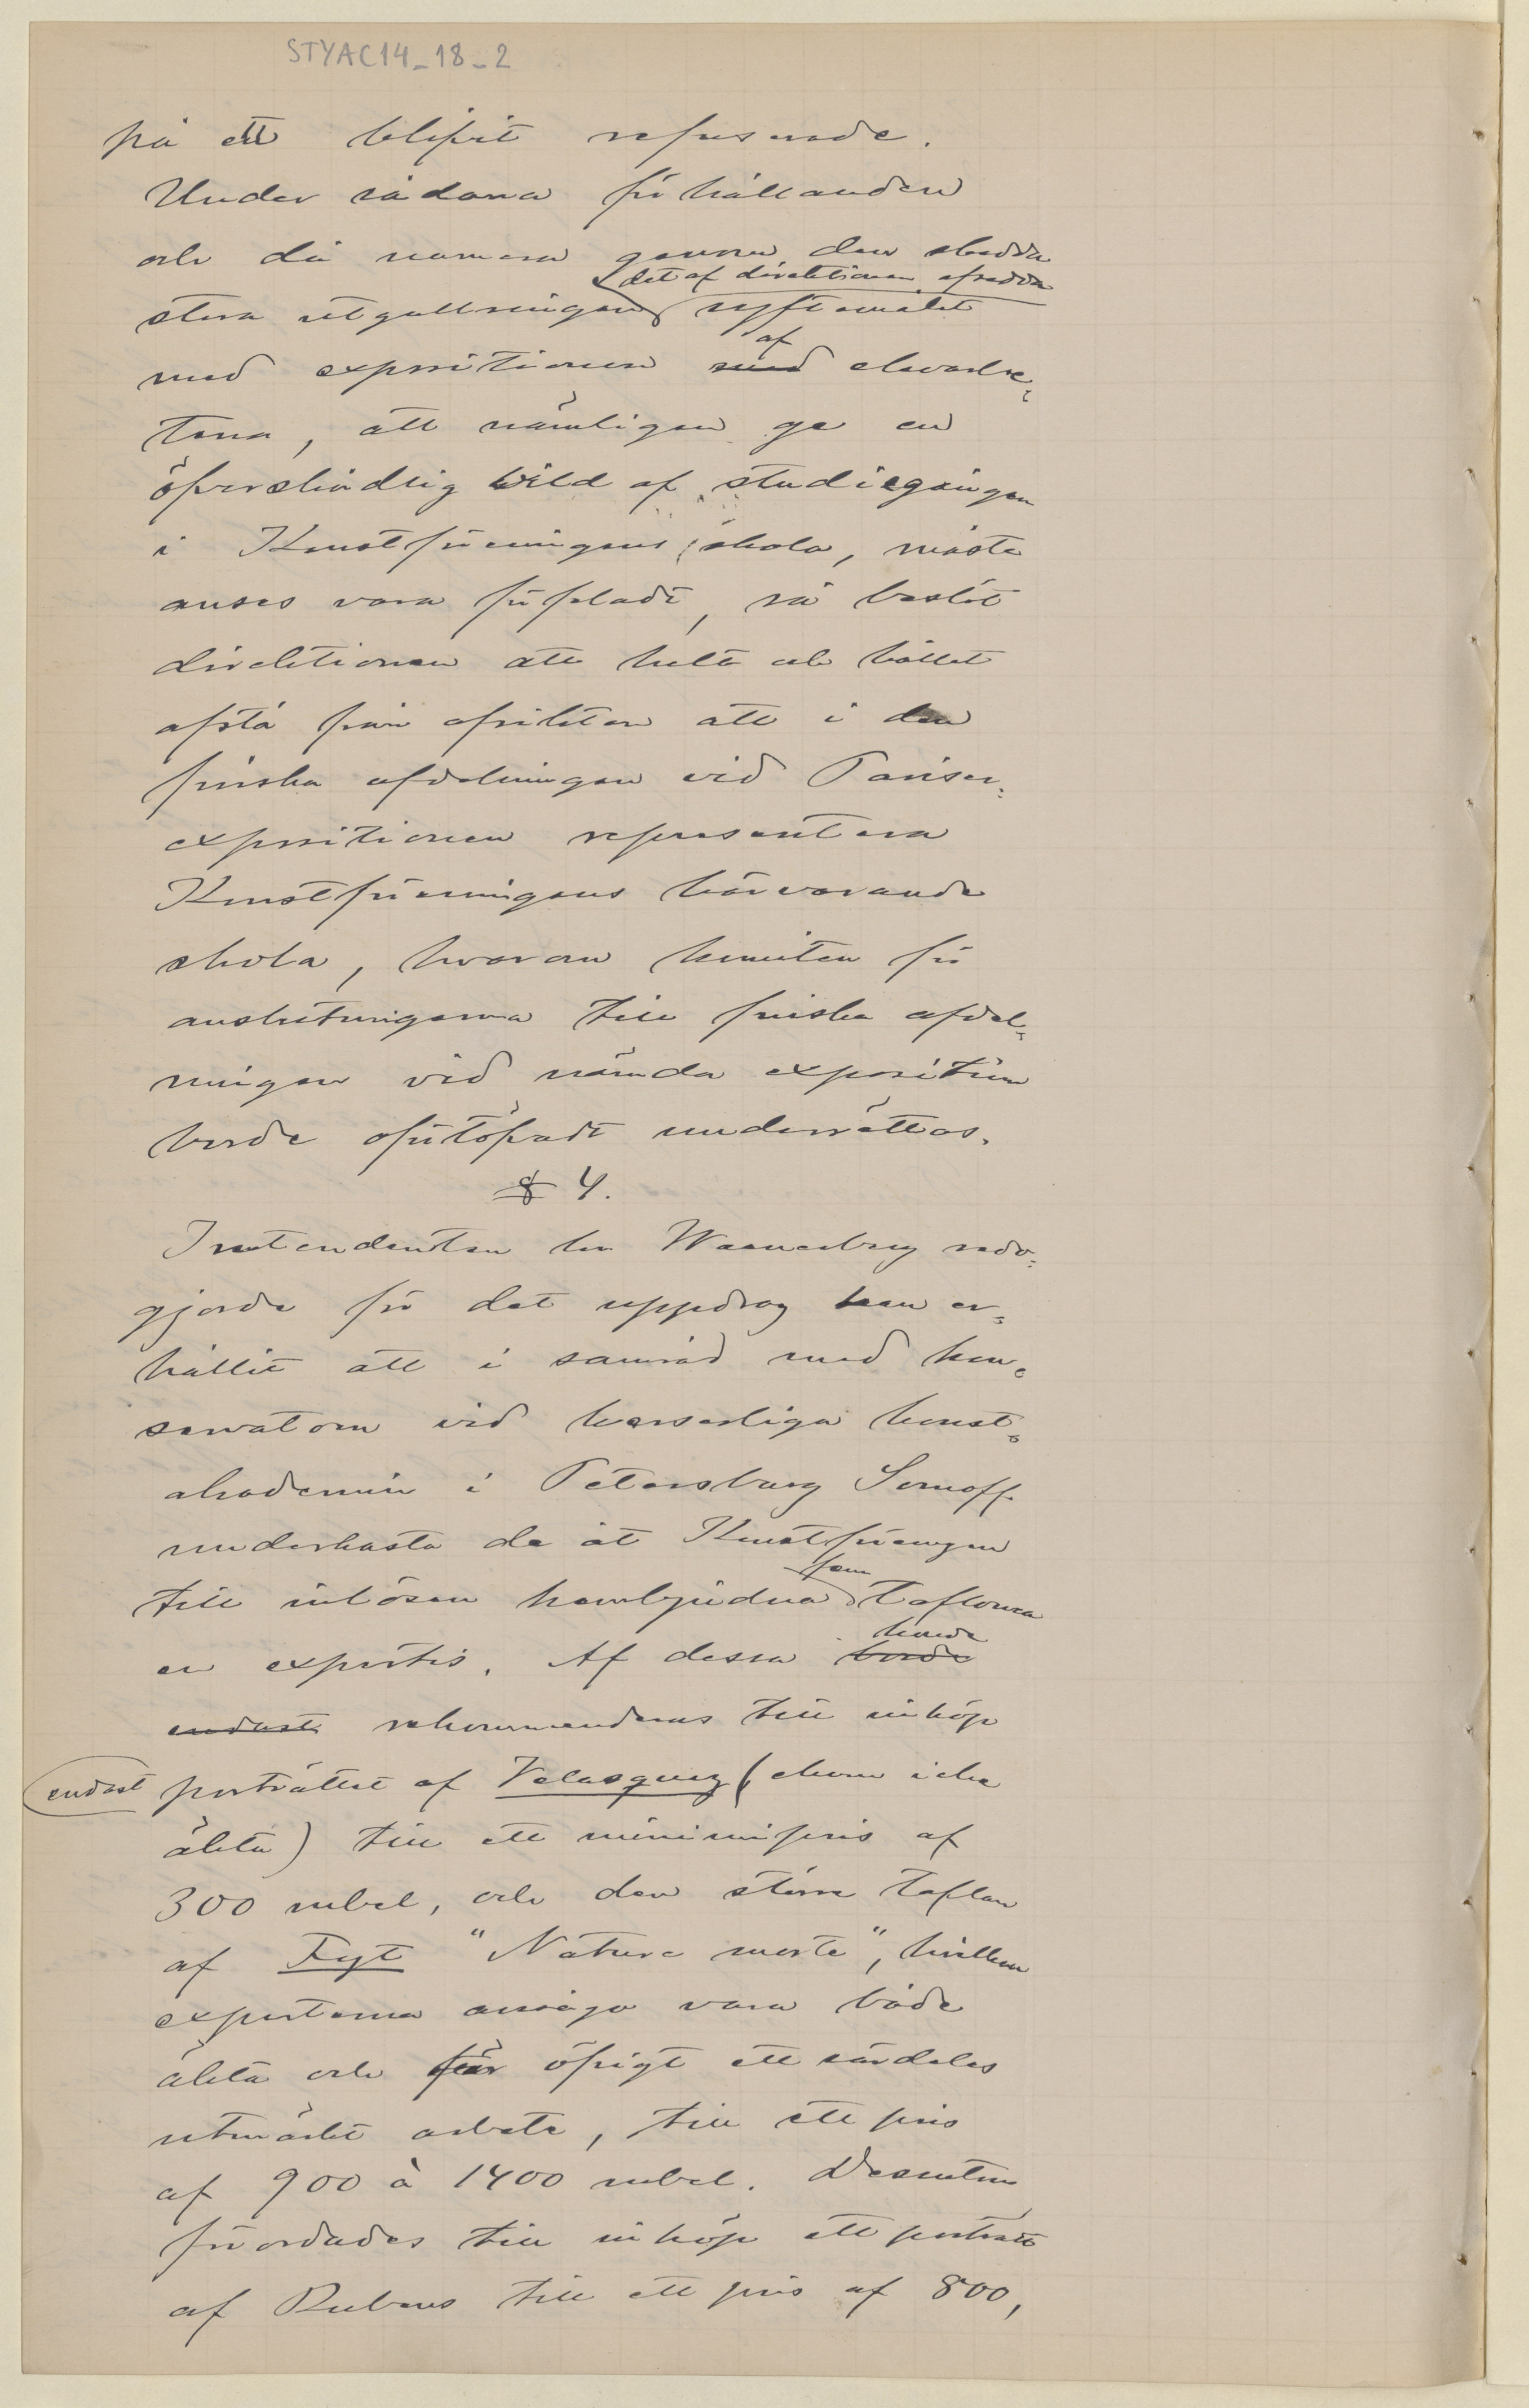 STYAC14_18_2
på ett blifvit refuserade.
Under sådana förhållanden
och då numera genom den skedda
det af direktionen afsedda
stora utgallringen syftemålet
med expositionen med af elevarbe-
tena, att nämligen ge en
öfverskådlig bild af studiegången
i Konstföreningens skola, måste
anses vara förfeladt, så beslöt
direktionen att helt och hållet
afstå från afsikten att i den
finska afdelningen vid Pariser-
expositionen representera
Konstföreningens härvarande
skola, hvarom komitén för
anslutningarna till finska afdel-
ningen vid nämda exposition
borde oförtöfvadt underrättas.
§ 4.
Intendenten hr Waenerberg redo-
gjorde för det uppdrag han er-
hållit att i samråd med kon-
servatorn vid kejserliga konst-
akademin i Petersburg Somoff
underkasta de åt Konstföreningen
till inlösen hembjudna som taflorna
en expertis. Af dessa borde kunde
endast rekommenderas till inköp
endast porträttet af Velasquez (ehuru icke
äkta) till ett minimipris af
300 rubel, och den större taflan
af Fyt "Nature morte", hvilken
experterna ansågo vara både
äkta och för öfrigt ett särdeles
utmärkt arbete, till ett pris
af 900 à 1400 rubel. Dessutom
förordades till inköp ett porträtt
af Rubens till ett pris af 800,